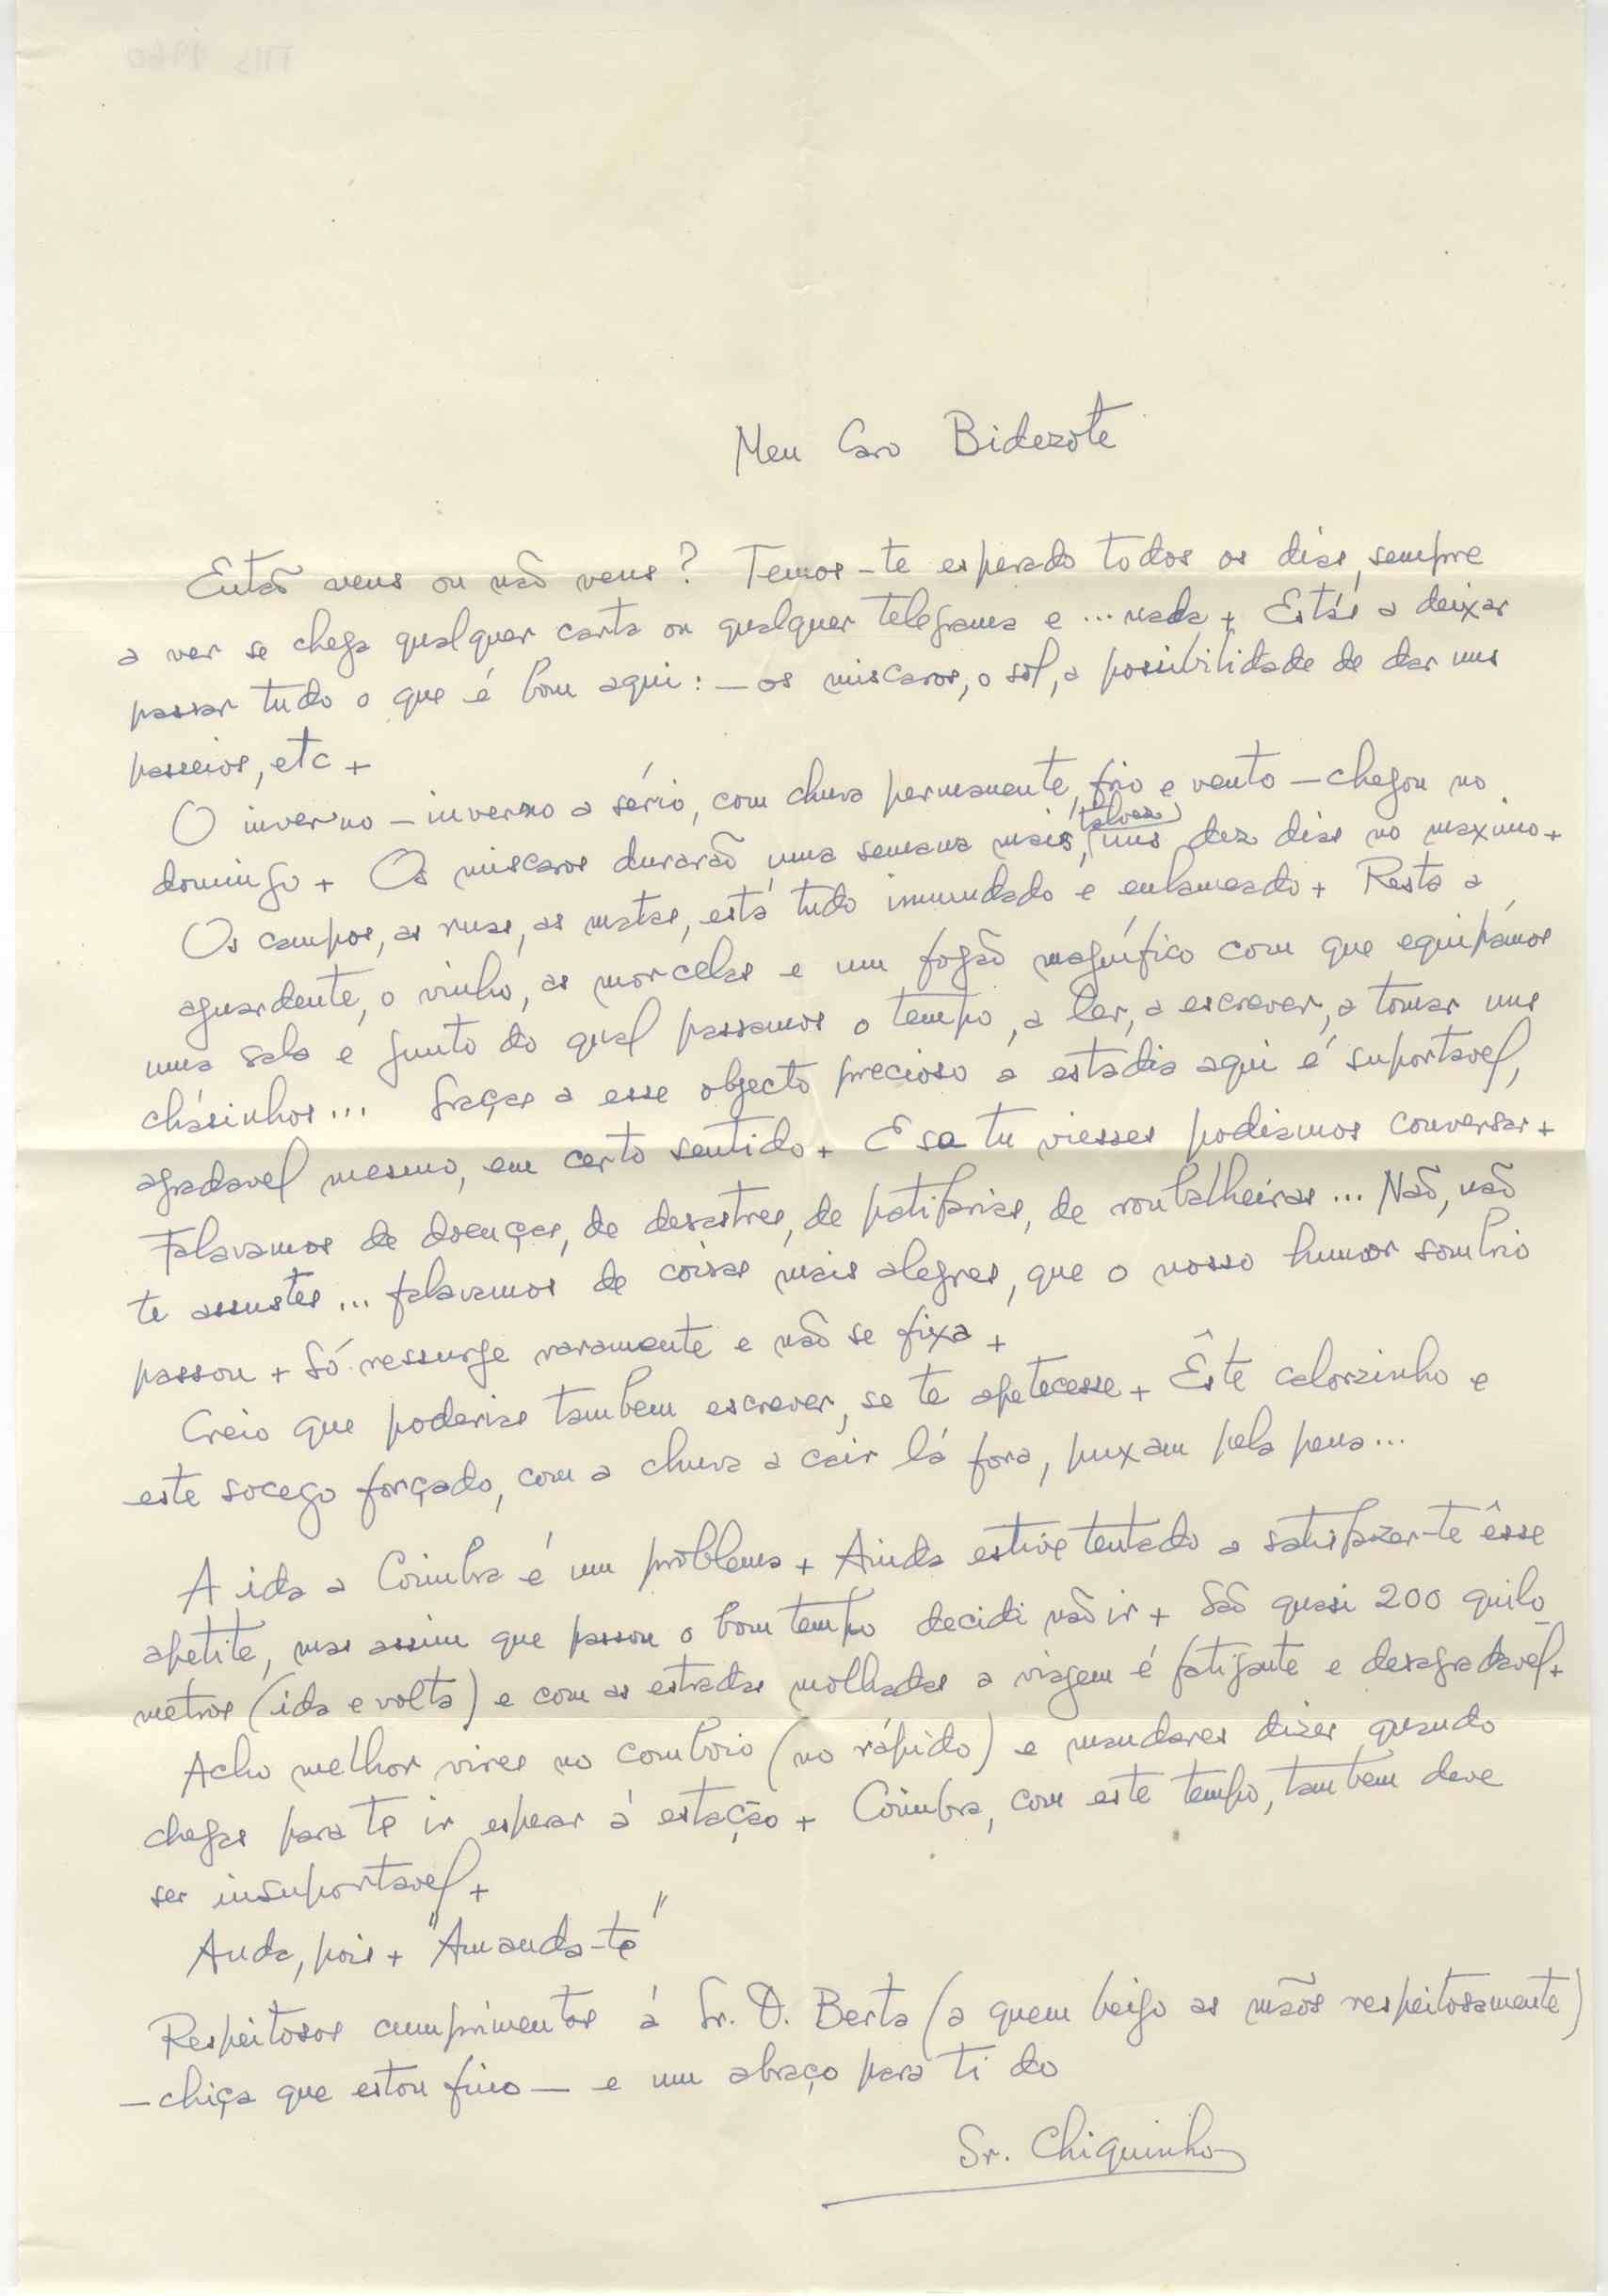 Meu Caro Biderote
Então vens ou não vens? Temos-te esperado todos os dias, sempre
a ver se chega qualquer carta ou qualquer telegrama e ... nada + Estás a deixar
passar tudo o que é bom aqui: — os miscaros, o sol, a possibilidade de dar uns
passeios, etc +
O inverno — inverno a sério, com chuva permanente, frio e vento — chegou no
domingo + Os miscaros durarão uma semana mais, talvez uns dez dias no maximo +
Os campos, as ruas, as matas, está tudo inundado e enlameado + Resta a
aguardente, o vinho, as morcelas e um fogão magnífico com que equipámos
uma sala e junto do qual passamos o tempo, a ler, a escrever, a tomar uns
chásinhos ... Graças a esse objecto precioso a estadia aqui é suportavel,
agradavel mesmo, em certo sentido + E se tu viesses podiamos conversar +
Falavamos de doenças, de desastres, de patifarias, de roubalheiras ... Não, não
te assustes ... falavamos de coisas mais alegres, que o nosso humor sombrio
passou + Só ressurge raramente e não se fixa +
Creio que poderias tambem escrever, se te apetecesse + Êste calorzinho e
este socego forçado, com a chuva a cair lá fora, puxam pela pena ...
A ida a Coimbra é um problema + Ainda estive tentado a satisfazer-te êsse
apetite, mas assim que passou o bom tempo decidi não ir + São quasi 200 quiló
metros (ida e volta) e com as estradas molhadas a viagem é fatigante e desagradavel +
Acho melhor vires no comboio (no rápido) e mandares dizer quando
chegas para te ir esperar á estação + Coimbra, com este tempo, tambem deve
ser insuportavel +
Anda, pois + "Amanda-te"
Respeitosos cumprimentos á Sr. D. Berta (a quem beijo as mãos respeitosamente)
— chiça que estou fino — e um abraço para ti do
Sr. Chiquinho